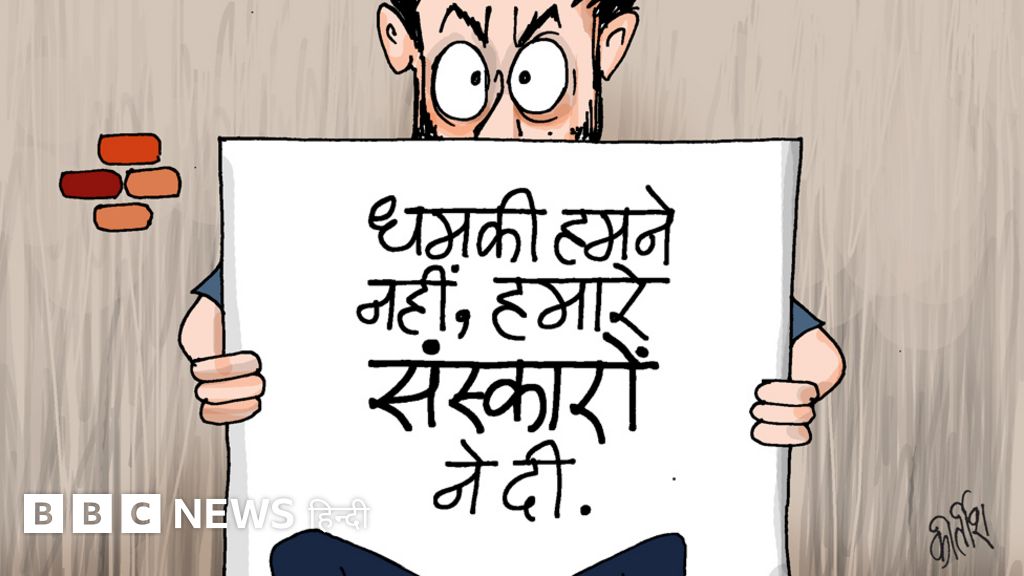 धमकी हमने
नहीं, हमारे
संस्कारों
ने दी.
BBC NEWS हिन्दी
कीर्तीश